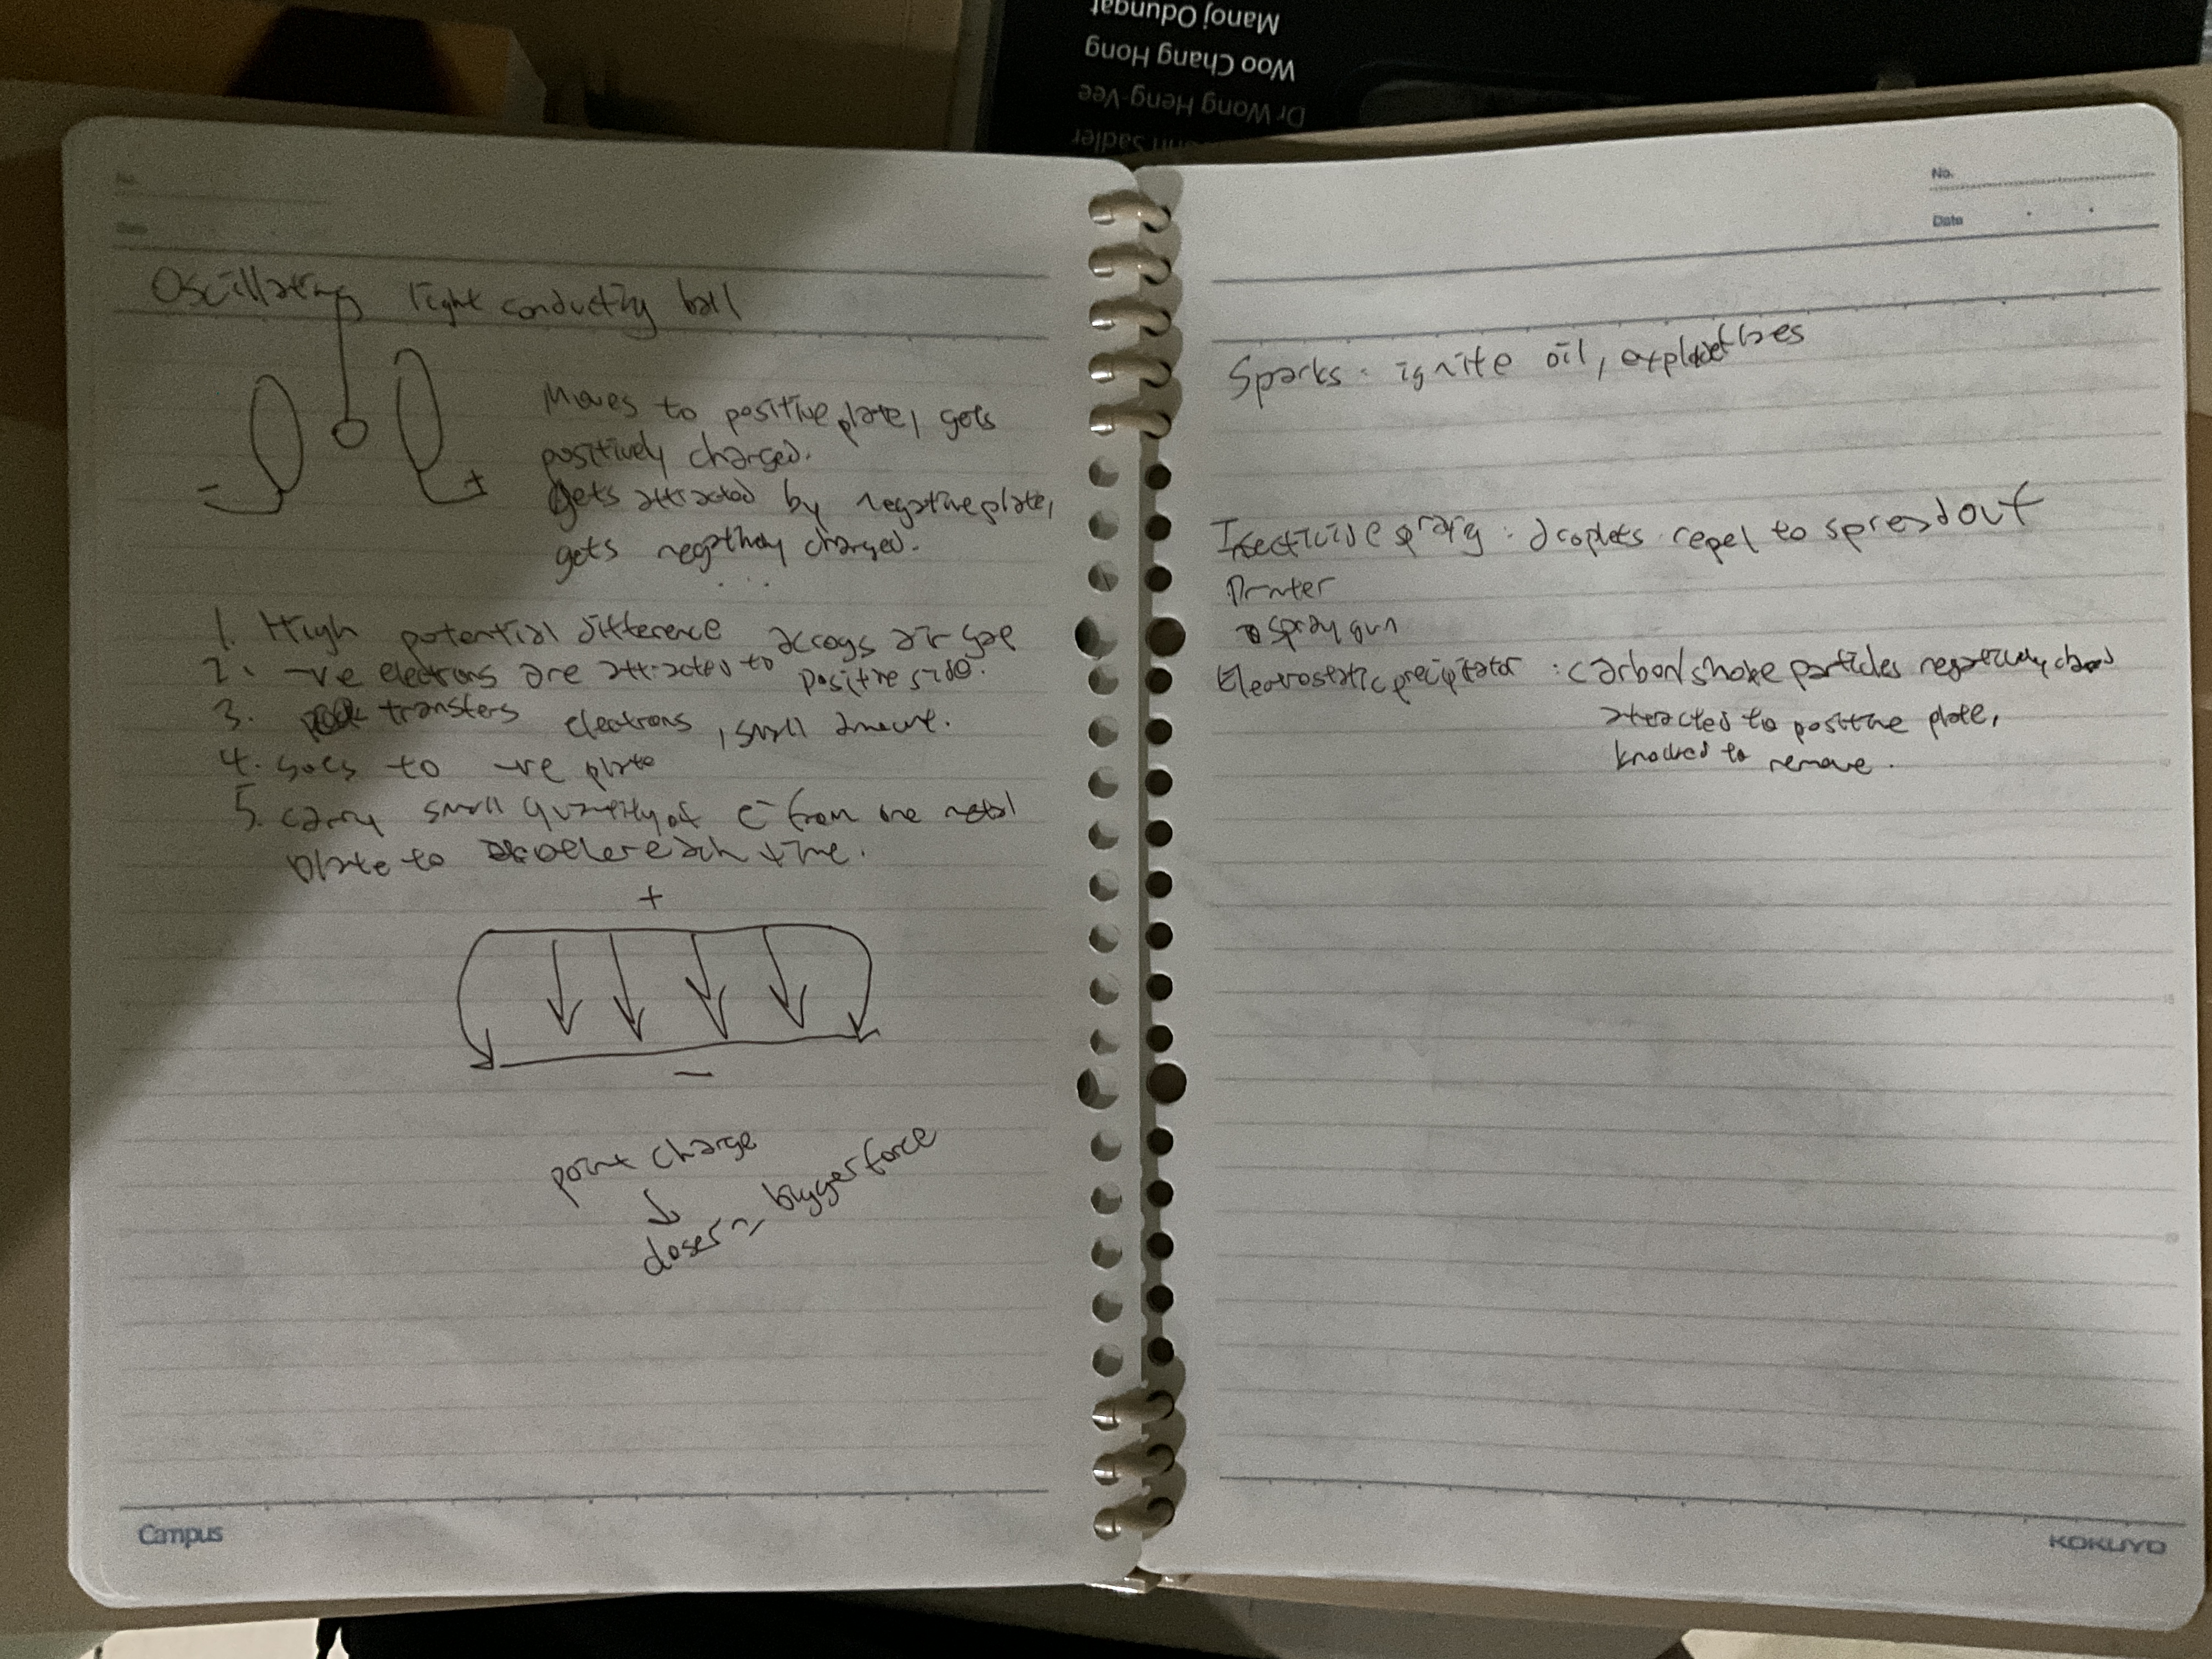 Manoj Odungat
Woo Chang Hong
Dr Wong Heng-Vee
Sadler
Oscillating light conducting ball
Moves to positive plate, gets
positively charged.
gets attracted by negative plate,
gets negatively charged.
...
- +
1. High potential difference across air gap
2. -ve electrons are attracted to positive side.
3. transfers electrons, small amount.
4. goes to -ve plate
5. carry small quantity of e- from one metal
plate to other each time.
+
-
point charge
↓
closer = bigger force
Campus
No.
Date
Sparks: ignite oil, explosives
Insecticide spray: droplets repel to spread out
Printer
spray gun
Electrostatic precipitator: carbon/smoke particles negatively charged
attracted to positive plate,
knocked to remove.
KOKUYO